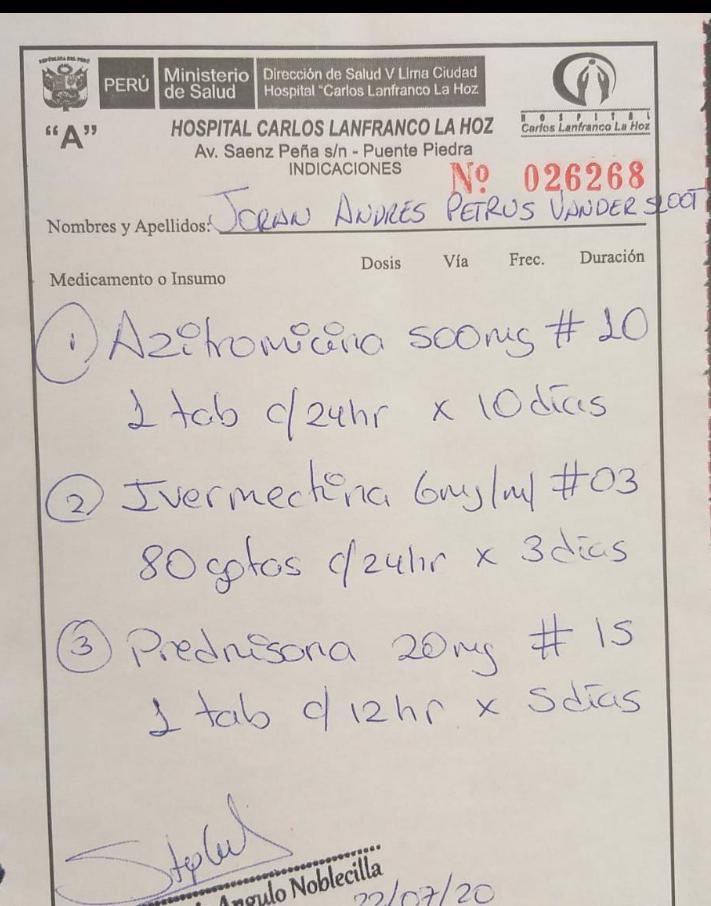 REPÚBLICA DEL PERÚ
PERÚ
Ministerio de Salud
Dirección de Salud V Lima Ciudad
Hospital "Carlos Lanfranco La Hoz
HOSPITAL
Carlos Lanfranco La Hoz
"A"
HOSPITAL CARLOS LANFRANCO LA HOZ
Av. Saenz Peña s/n - Puente Piedra
INDICACIONES
Nº 026268
Nombres y Apellidos: JORAN ANDRES PETRUS VANDER SLOOT
Medicamento o Insumo Dosis Vía Frec. Duración
1) Azitromicina 500mg # 10
1 tab c/24hr x 10 días
2) Ivermectina 6mg/ml #03
80 gotas c/24hr x 3 días
3) Prednisona 20mg # 15
1 tab c/12hr x 5 días
Angulo Noblecilla
22/07/20